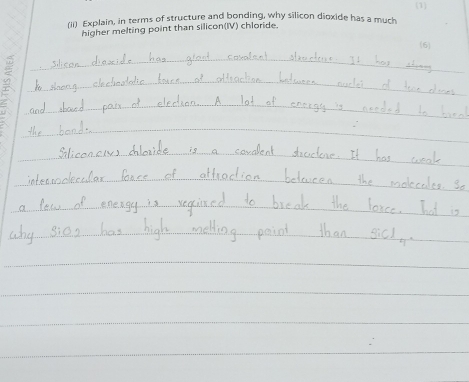 (ii) Explain, in terms of structure and bonding, why silicon dioxide has a much
higher melting point than silicon(IV) chloride.
Silicon dioxide has giant covalent structure. It has strong
strong electrostatic force of attraction between nuclei of
and shared pair of electron. A lot of energy is needed to break
the bond.
Silicon(IV) chloride is a covalent structure. It has weak
intermolecular force of attraction between the molecules. So
a few of energy is required to break the force. That is
why SiO2 has high melting point than SiCl4.